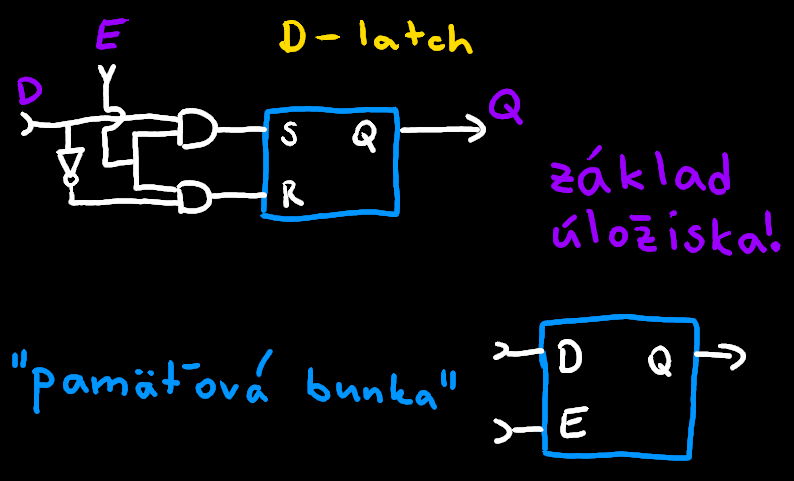 E
D-latch
D
Q
S Q
R
základ
úložiska!
"pamäťová bunka"
D Q
E